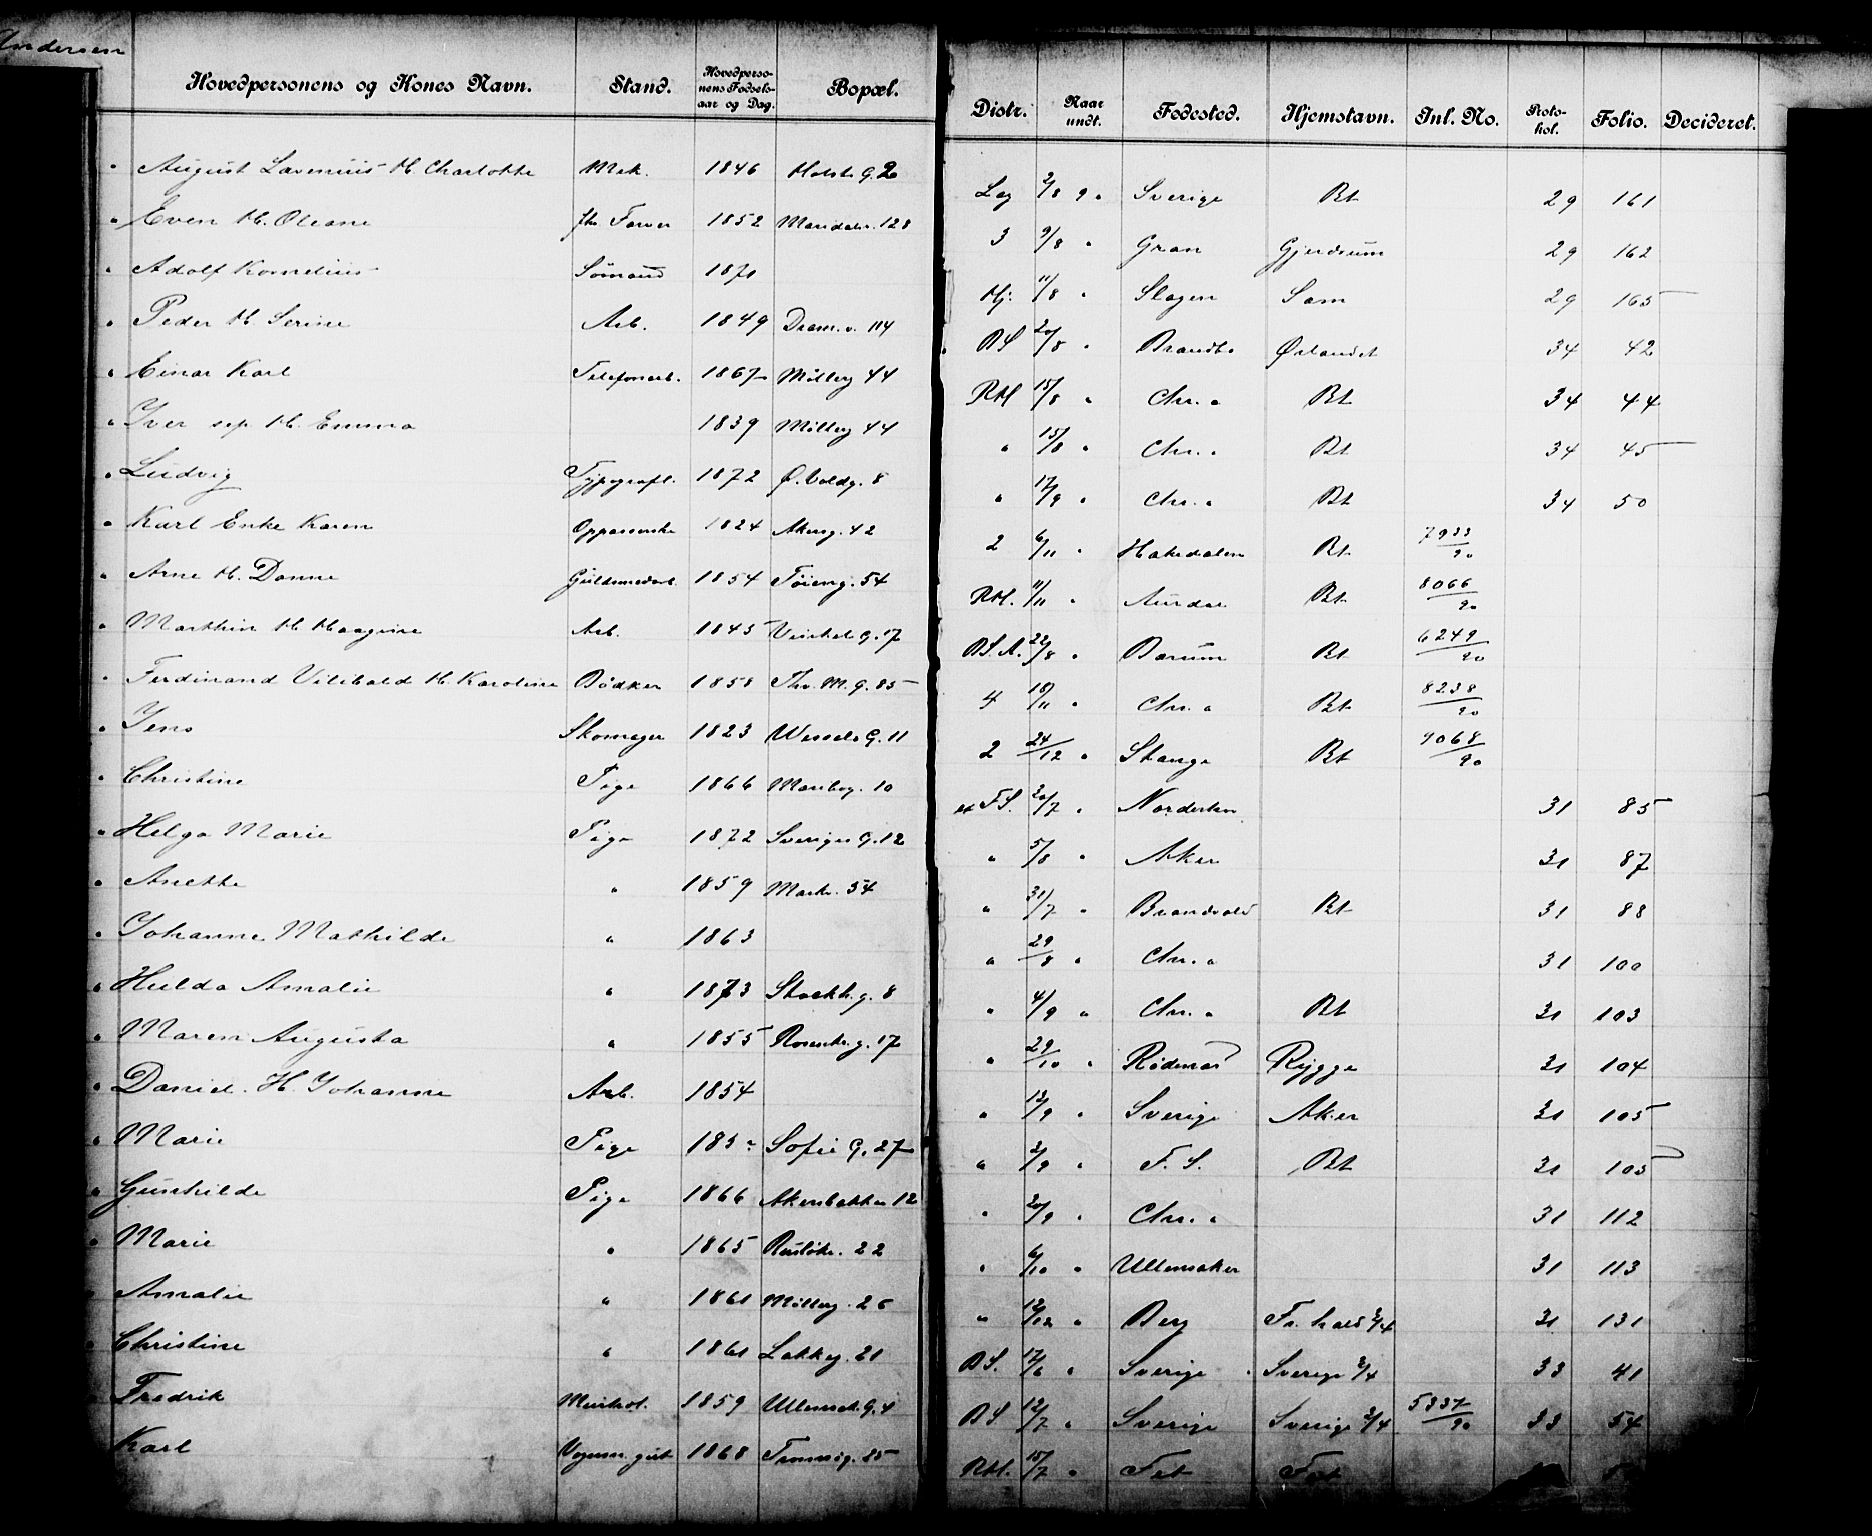 Andersen
Hovedpersonens og Kones Navn. Stand. Hovedpersonens Fødselsaar og Dag. Bopæl. Distr. Naar undt. Fødested. Hjemstavn. Inl. No. Protokol. Folio. Decideret.
" August Lavenius H. Charlotte Mek. 1846 Holsts G. 2 Leg 2/8 9 " Sverige Bt 29 161
" Even H. Oleane fhv Farver 1852 Maridalsv. 128 3 9/8 " Gran Gjerdrum 29 162
" Adolf Kornelius Sømand 1871 Hj. 11/8 " Slagen Sam 29 165
" Peder H. Serine Arb. 1849 Dram. v. 114 BS 20/8 " Brandbo Ørlandet 34 42
" Einar Karl Telefonarb. 1867 Møllerg 44 RM 15/8 " Chr. a Bt 34 44
" Iver sep. H. Emma 1839 Møllerg 44 " 15/8 " Chr. a Bt 34 45
" Ludvig Typograf. 1872 Ø. Voldg. 8 " 17/9 " Chr. a Bt 34 50
" Karl Enke Karen Oppasserske 1824 Akersg. 42 2 6/11 " Hakedalen Bt 7933/90
" Arne H. Donne Guldsmedarb. 1854 Tøieng. 54 RM. 11/11 " Aurdal Bt 8066/90
" Marthin H. Haagine Arb. 1845 G. 17 BS. A. 22/8 " Bærum Bt 6249/90
" Ferdinand Vilibald H. Karoline Bødker 1858 Thv. M. G. 85 4 18/11 " Chr. a Bt 8238/90
" Jens Skomager 1823 Wessels G. 11 2 24/12 " Stange Bt 9068/90
" Christine Pige 1866 Maribog. 10 FS. 30/7 " 31 85
" Helga Marie Pige 1872 Sveriges G. 12 " 5/8 " Aker 31 87
" Anette " 1859 Markv. 54 " 31/7 " Brandvold Bt 31 88
" Johanne Mathilde " 1863 " 29/8 " Chr. a 31 100
" Hulda Amalie " 1873 Stockh. g. 8 " 4/9 " Chr. a Bt 31 103
" Maren Augusta " 1855 Rosenkr. g. 17 " 29/10 " Rødenæs Rygge 31 104
" Daniel. H. Johanne Arb. 1854 " 12/9 " Sverige Aker 31 105
" Marie Pige Sofie G. 27 " 2/9 " F. S. Bt 31 105
" Gunhilde Pige 1866 Akersbakken 12 " 20/9 " Chr. a 31 112
" Marie " 1865 Ruseløkv. 22 " 6/10 " Ullensaker 31 113
" Amalie " 1861 Møllerg. 26 " 12/12 " Berg Fr. hald 2/4 31 131
" Christine " 1861 Lakkeg. 21 BS. 17/6 " Sverige Sverige 2/4 33 41
" Fredrik Maskst. 1859 Ullensak. G. 4 BS 12/7 " Sverige Sverige 2/4 5337/90 33 54
Karl Vognm. gut 1868 Tromsøg. 25 RM. 15/7 " Fet Fet